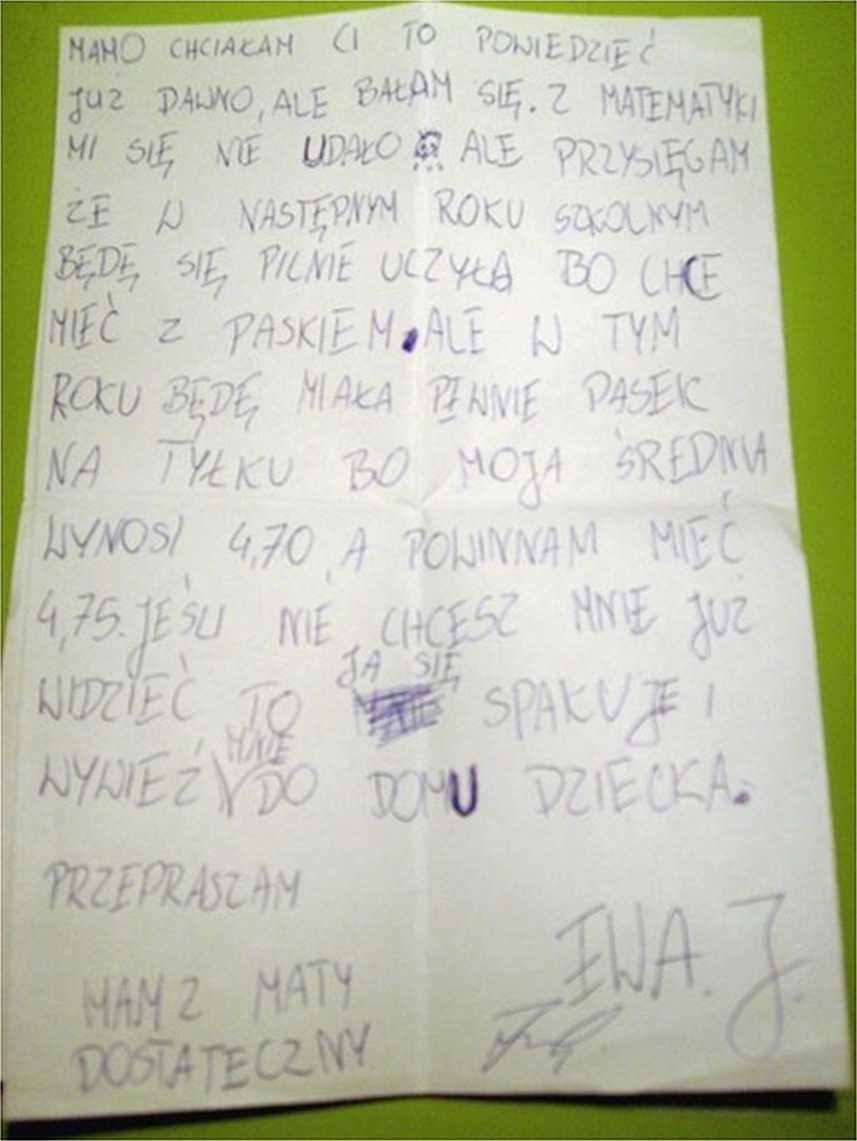 MAMO CHCIAŁAM CI TO POWIEDZIEĆ
JUŻ DAWNO, ALE BAŁAM SIĘ. Z MATEMATYKI
MI SIĘ NIE UDAŁO ALE PRZYSIĘGAM
ŻE W NASTĘPNYM ROKU SZKOLNYM
BĘDĘ SIĘ PILNIE UCZYŁA BO CHCE
MIEĆ Z PASKIEM. ALE W TYM
ROKU BĘDĘ MIAŁA PEWNIE PASEK
NA TYŁKU BO MOJA ŚREDNIA
WYNOSI 4,70, A POWINNAM MIEĆ
4,75. JEŚLI NIE CHCESZ MNIE JUŻ
JA SIĘ
WIDZIEĆ TO SPAKUJE I
MNIE
WYWIEŹ DO DOMU DZIECKA.
PRZEPRASZAM
EWA. J.
MAM Z MATY
DOSTATECZNY